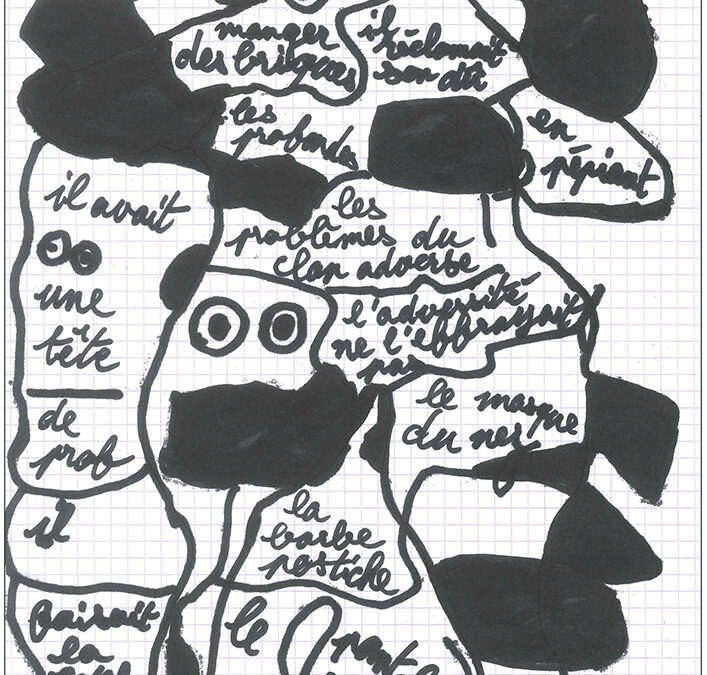 manger
des briques
il
réclamait
son dû
les
profondes
en
pépiant
il avait
une
tête
de
prof
les
problèmes du
clan adverse
l'adversité
ne l'effrayait
pas
le masque
du nez
il
la
barbe
postiche
faisait
la
le